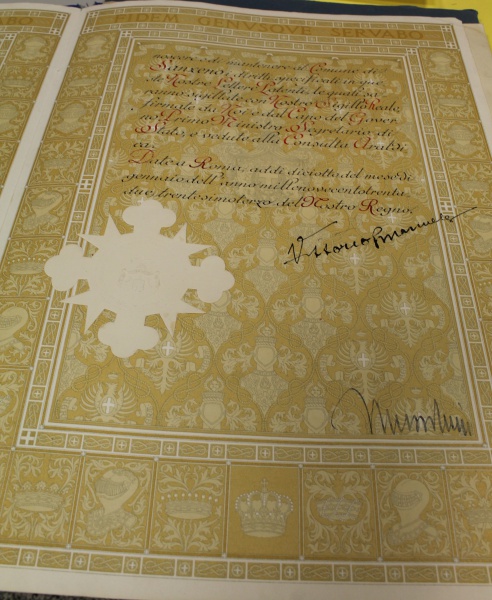 FIDEM GENUSQVE SERVABO
noscere e di mantenere al Comune di
Sanzeno i diritti specificati in que-
ste Nostre Lettere Patenti, le quali sa-
ranno sigillate con Nostro Sigillo Reale,
firmate da Noi e dal Capo del Gover-
no Primo Ministro Segretario di
Stato e vedute alla Consulta Araldi-
ca.
Dato a Roma, addì diciotto del mese di
gennaio dell'anno millenovecentotrenta-
due, trentesimoterzo del Nostro Regno.
Vittorio Emanuele
Mussolini